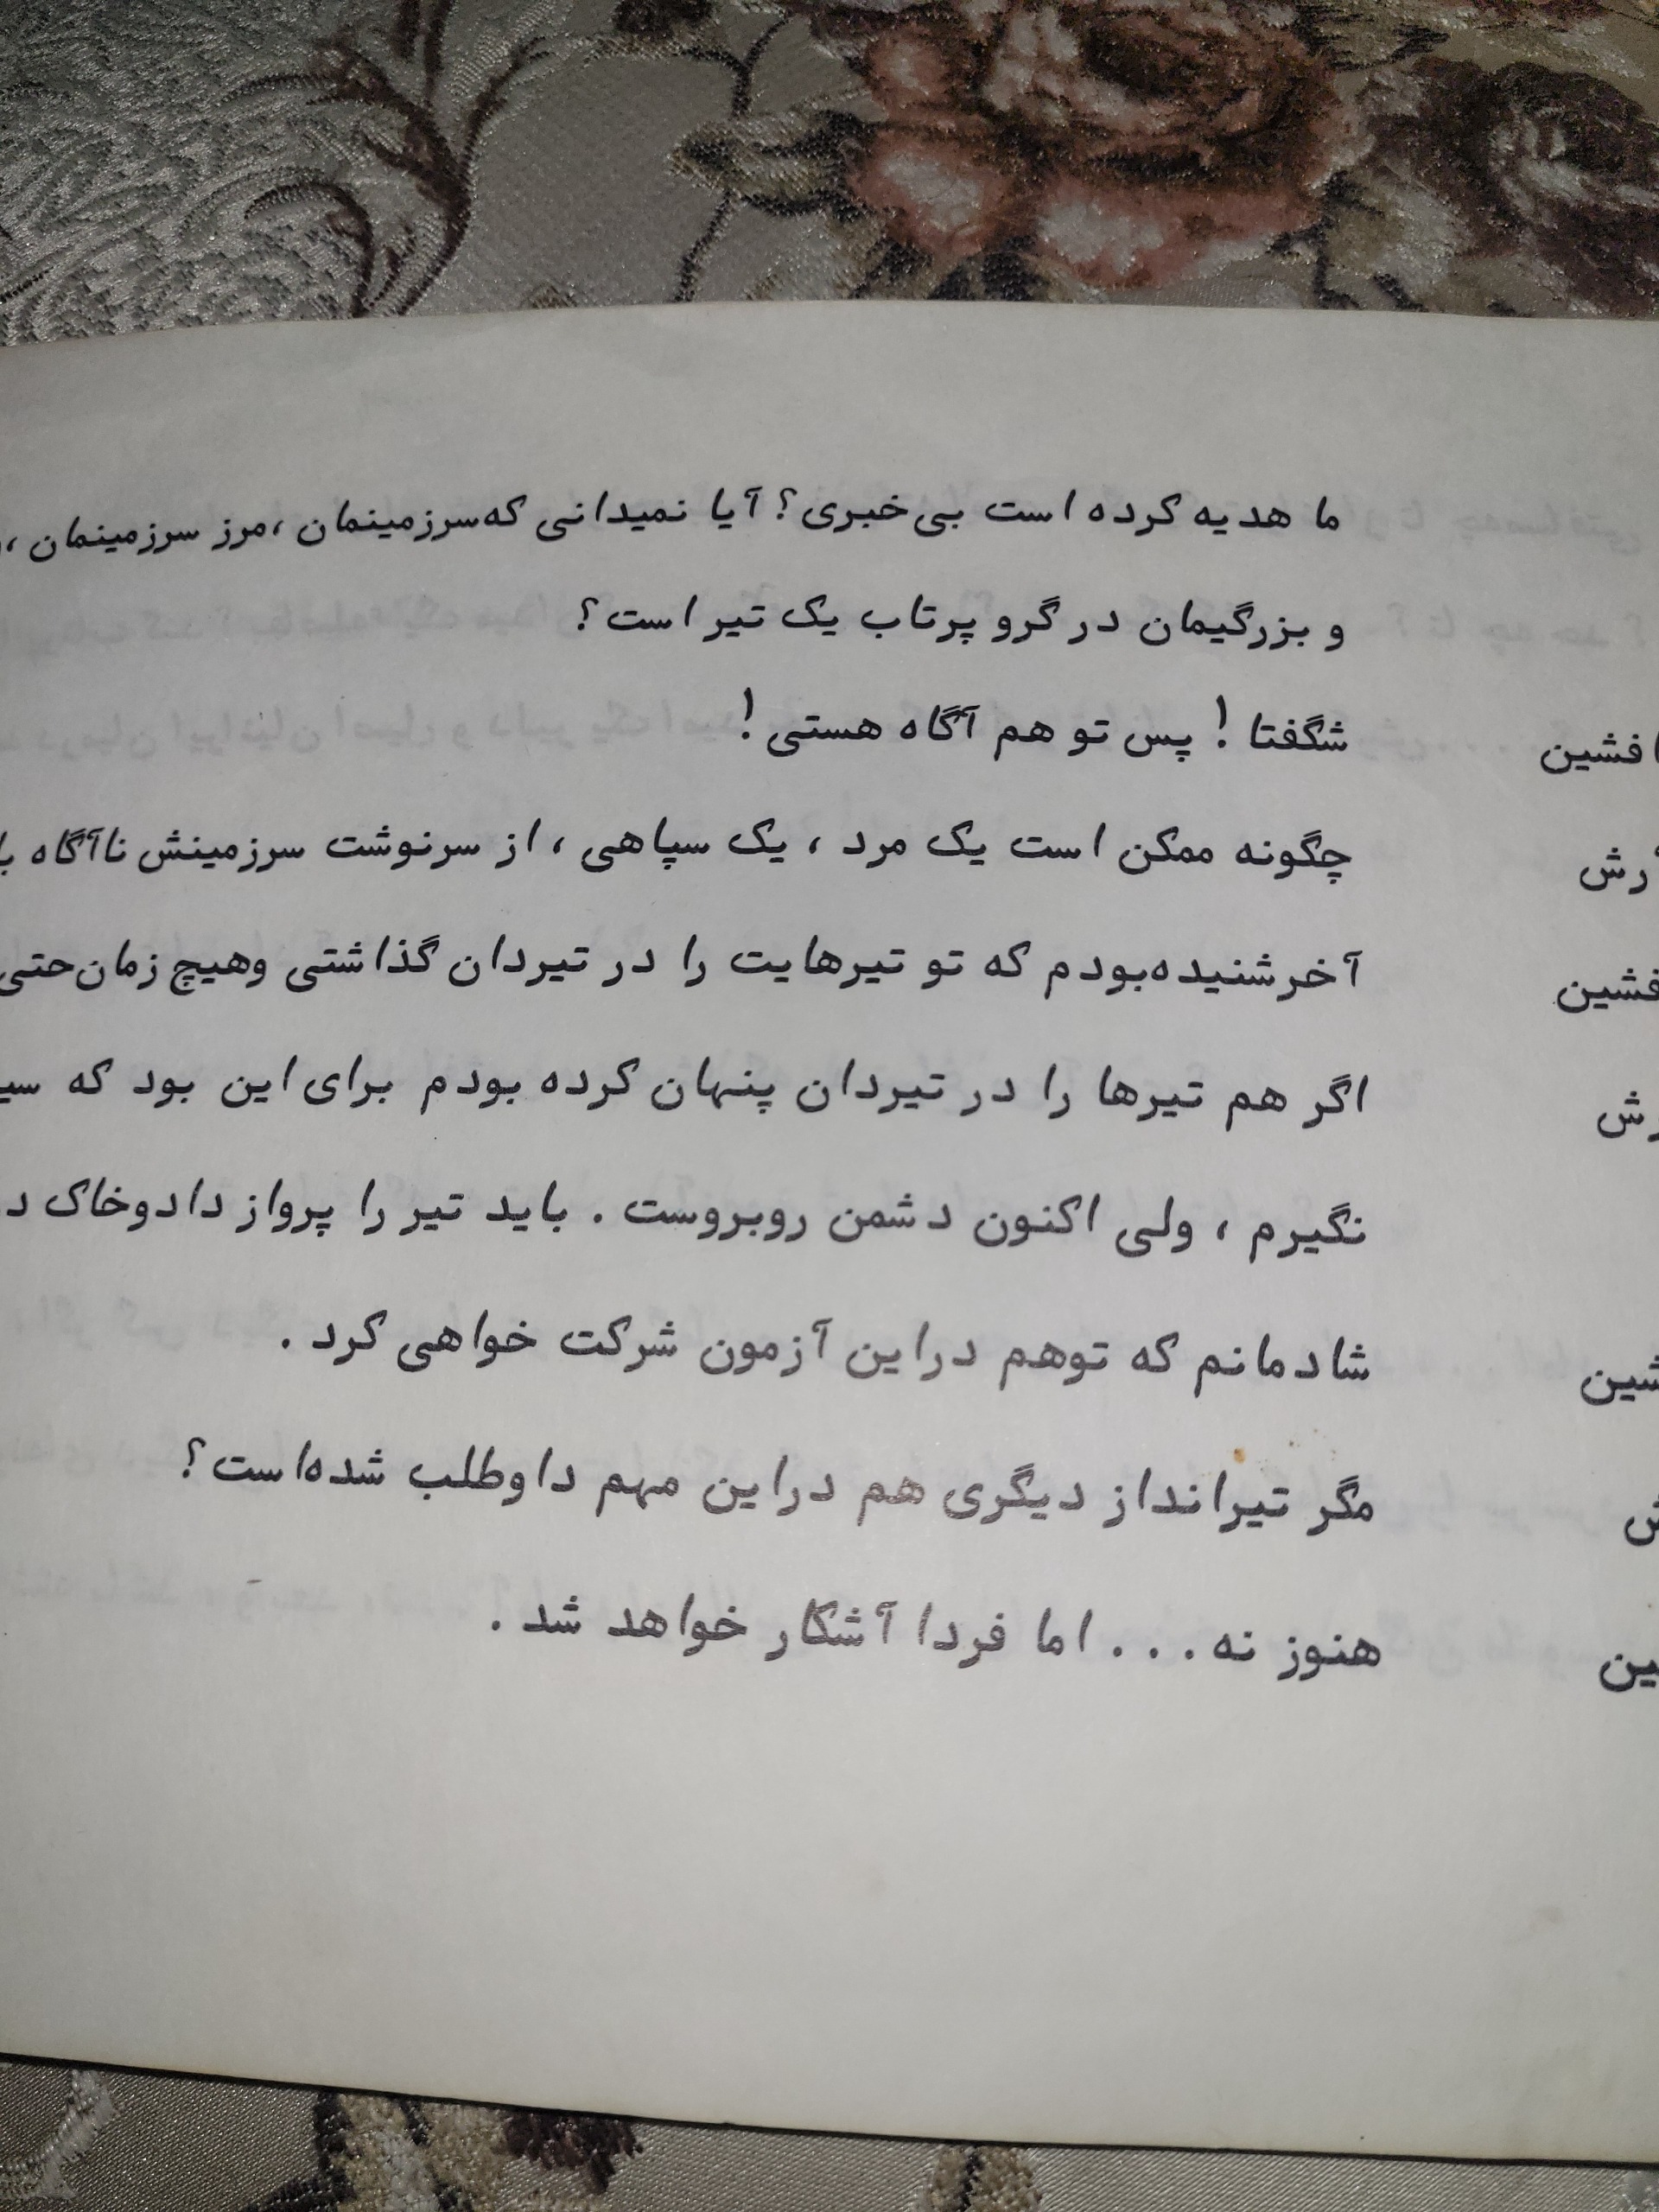 ما هدیه کرده است بی‌خبری؟ آیا نمیدانی که سرزمینمان ،مرز سرزمینمان ،
و بزرگیمان در گرو پرتاب یک تیر است؟
افشین شگفتا ! پس تو هم آگاه هستی !
آرش چگونه ممکن است یک مرد ، یک سپاهی ، از سرنوشت سرزمینش ناآگاه
فشین آخر شنیده‌بودم که تو تیرهایت را در تیردان گذاشتی وهیچ زمان حتی
رش اگر هم تیرها را در تیردان پنهان کرده بودم برای این بود که
نگیرم ، ولی اکنون دشمن روبروست . باید تیر را پرواز داد وخاک
شین شادمانم که توهم دراین آزمون شرکت خواهی کرد .
ش مگر تیرانداز دیگری هم دراین مهم داوطلب شده‌است؟
ین هنوز نه . . . اما فردا آشکار خواهد شد .